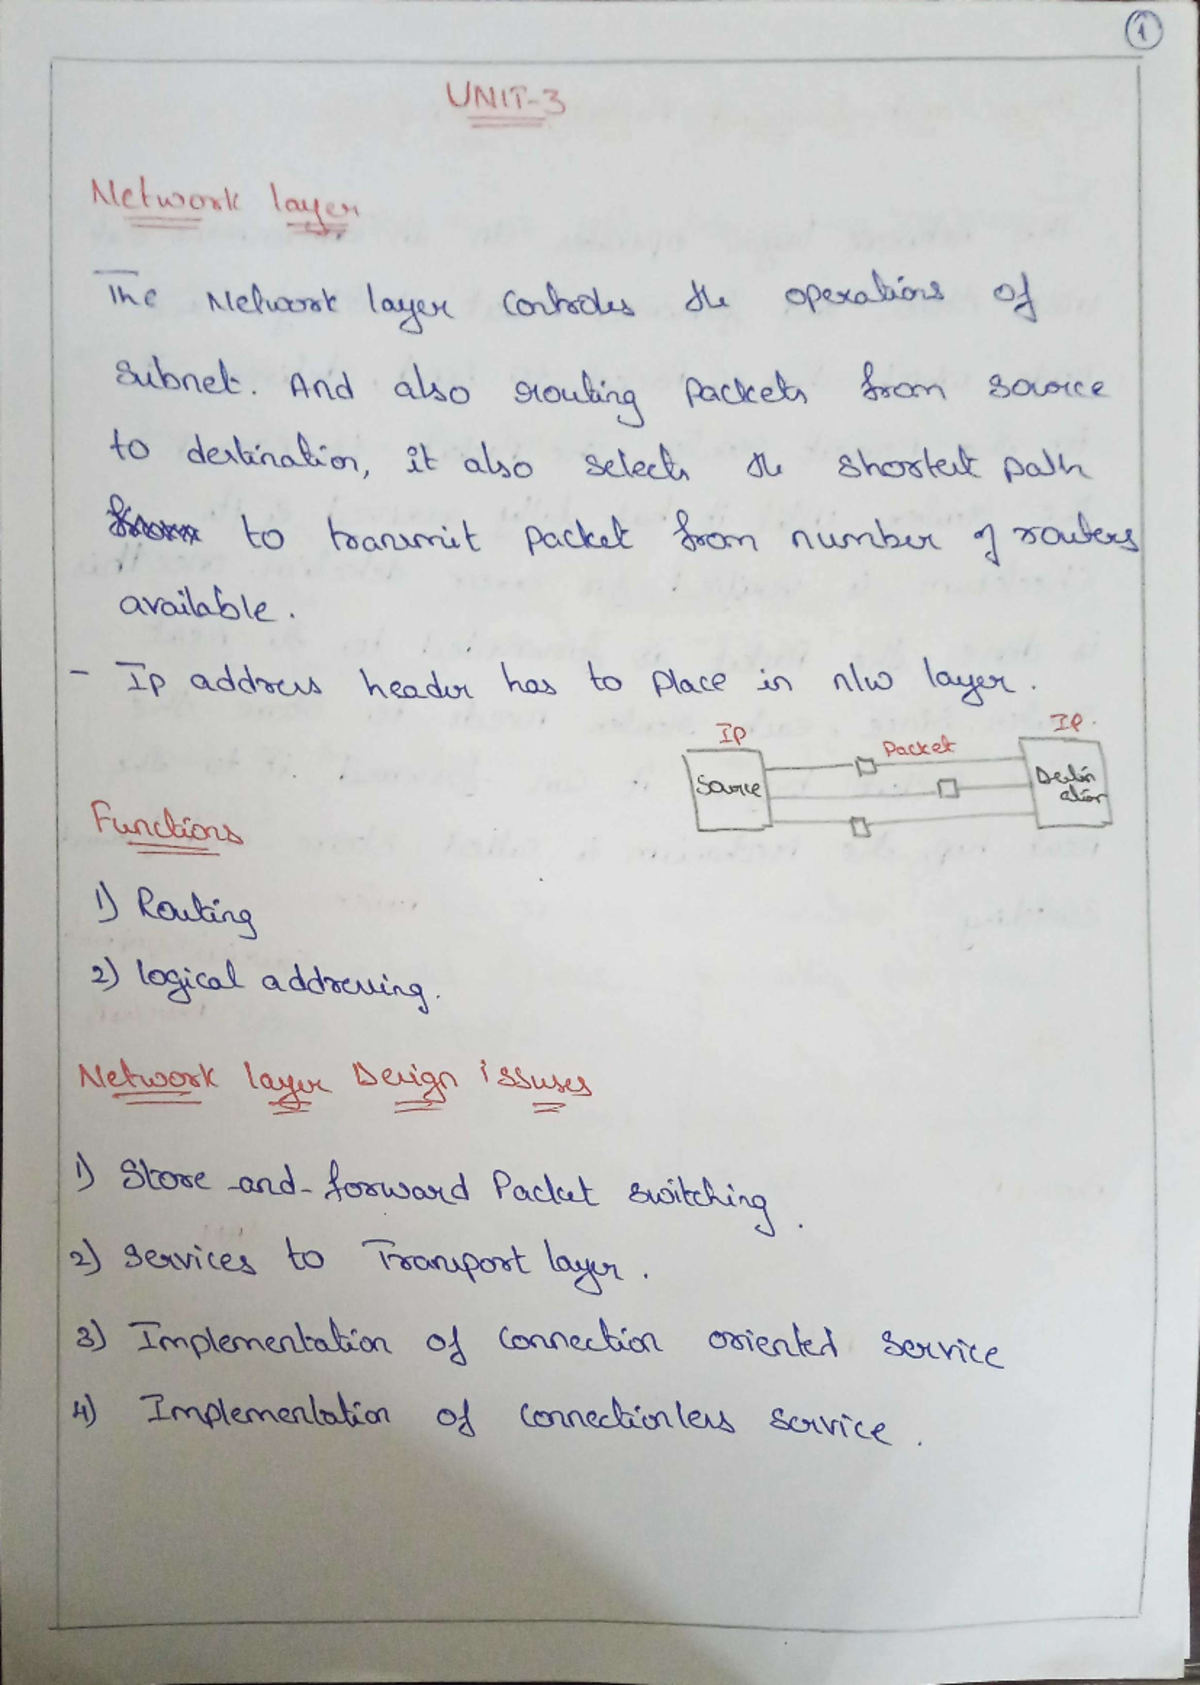 1
UNIT-3
Network layer
The Network layer Controles the operations of
subnet. And also routing Packets from source
to destination, it also selects the shortest path
to transmit Packet from number of routers
available.
- Ip address header has to place in n/w layer.
Ip Packet IP.
Source Destin
ation
Functions
1) Routing
2) logical addressing.
Network layer Design issuses
1) Store-and-forward Packet switching.
2) Services to Transport layer.
3) Implementation of Connection oriented Service
4) Implementation of connectionless service.